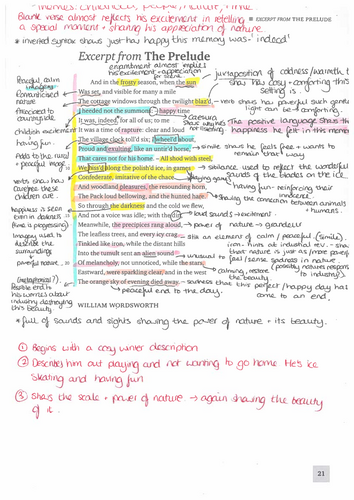 Themes: childhood, people, nature, time
Blank verse almost reflects his excitement in retelling
a special moment + sharing his appreciation of nature.
■ EXCERPT FROM THE PRELUDE
* inverted syntax shows just how happy this memory was - 'indeed'
Excerpt from The Prelude
enjambment almost implies
his excitement + appreciation
for nature
juxtaposition of coldness/warmth
shows how cosy + comforting this
setting is.
And in the frosty season, when the sun
Was set, and visible for many a mile
The cottage windows through the twilight blaz'd,
I heeded not the summons: – happy time
It was, indeed, for all of us; to me
It was a time of rapture: clear and loud
The village clock toll'd six; I wheel'd about,
Proud and exulting, like an untir'd horse,
That cares not for his home. – All shod with steel,
We hiss'd along the polish'd ice, in games
Confederate, imitative of the chace
And woodland pleasures, the resounding horn,
The Pack loud bellowing, and the hunted hare.
So through the darkness and the cold we flew,
And not a voice was idle; with the din,
Meanwhile, the precipices rang aloud,
The leafless trees, and every icy crag
Tinkled like iron, while the distant hills
Into the tumult sent an alien sound
Of melancholy, not unnoticed, while the stars,
Eastward, were sparkling clear, and in the west
The orange sky of evening died away.
WILLIAM WORDSWORTH
Peaceful, calm
imagery
Romanticised
nature
Pronounced to
countryside
childish excitement
having fun.
Adds to the rural
+ peaceful mood
verbs show how
carefree these
children are.
happiness is seen
even in darkness
(time is progressing)
Imagery used to
describe the
surroundings
+ powerful nature
(metaphorical?)
Possible end to
his worries about
industry destroying
this beauty.
verb shows how powerful such gentle
light can be + comforting.
caesura
The positive language shows the
happiness he felt in this moment
simile shows he feels free + wants to
remain that way
sibilance used to reflect the wonderful
sounds of the blades on the ice
playing games
having fun - reinforcing their
innocence
Showing the connection between animals
+ humans.
loud sounds + excitement.
power of nature → grandeur
still an element of calm / peaceful. (simile).
iron - hints at industrial rev. - shows
that nature is just as/more powerful
unusual to feel/sense sadness in nature
calming, restore
the beauty.
(possibly nature's response
to industry).
sadness that this perfect/happy day has
come to an end.
peaceful end to the day.
* full of sounds and sights showing the power of nature + its beauty.
① Begins with a cosy winter description
② Describes him out playing and not wanting to go home. He's ice
skating and having fun
③ Shows the scale + power of nature → again showing the beauty
of it.
21